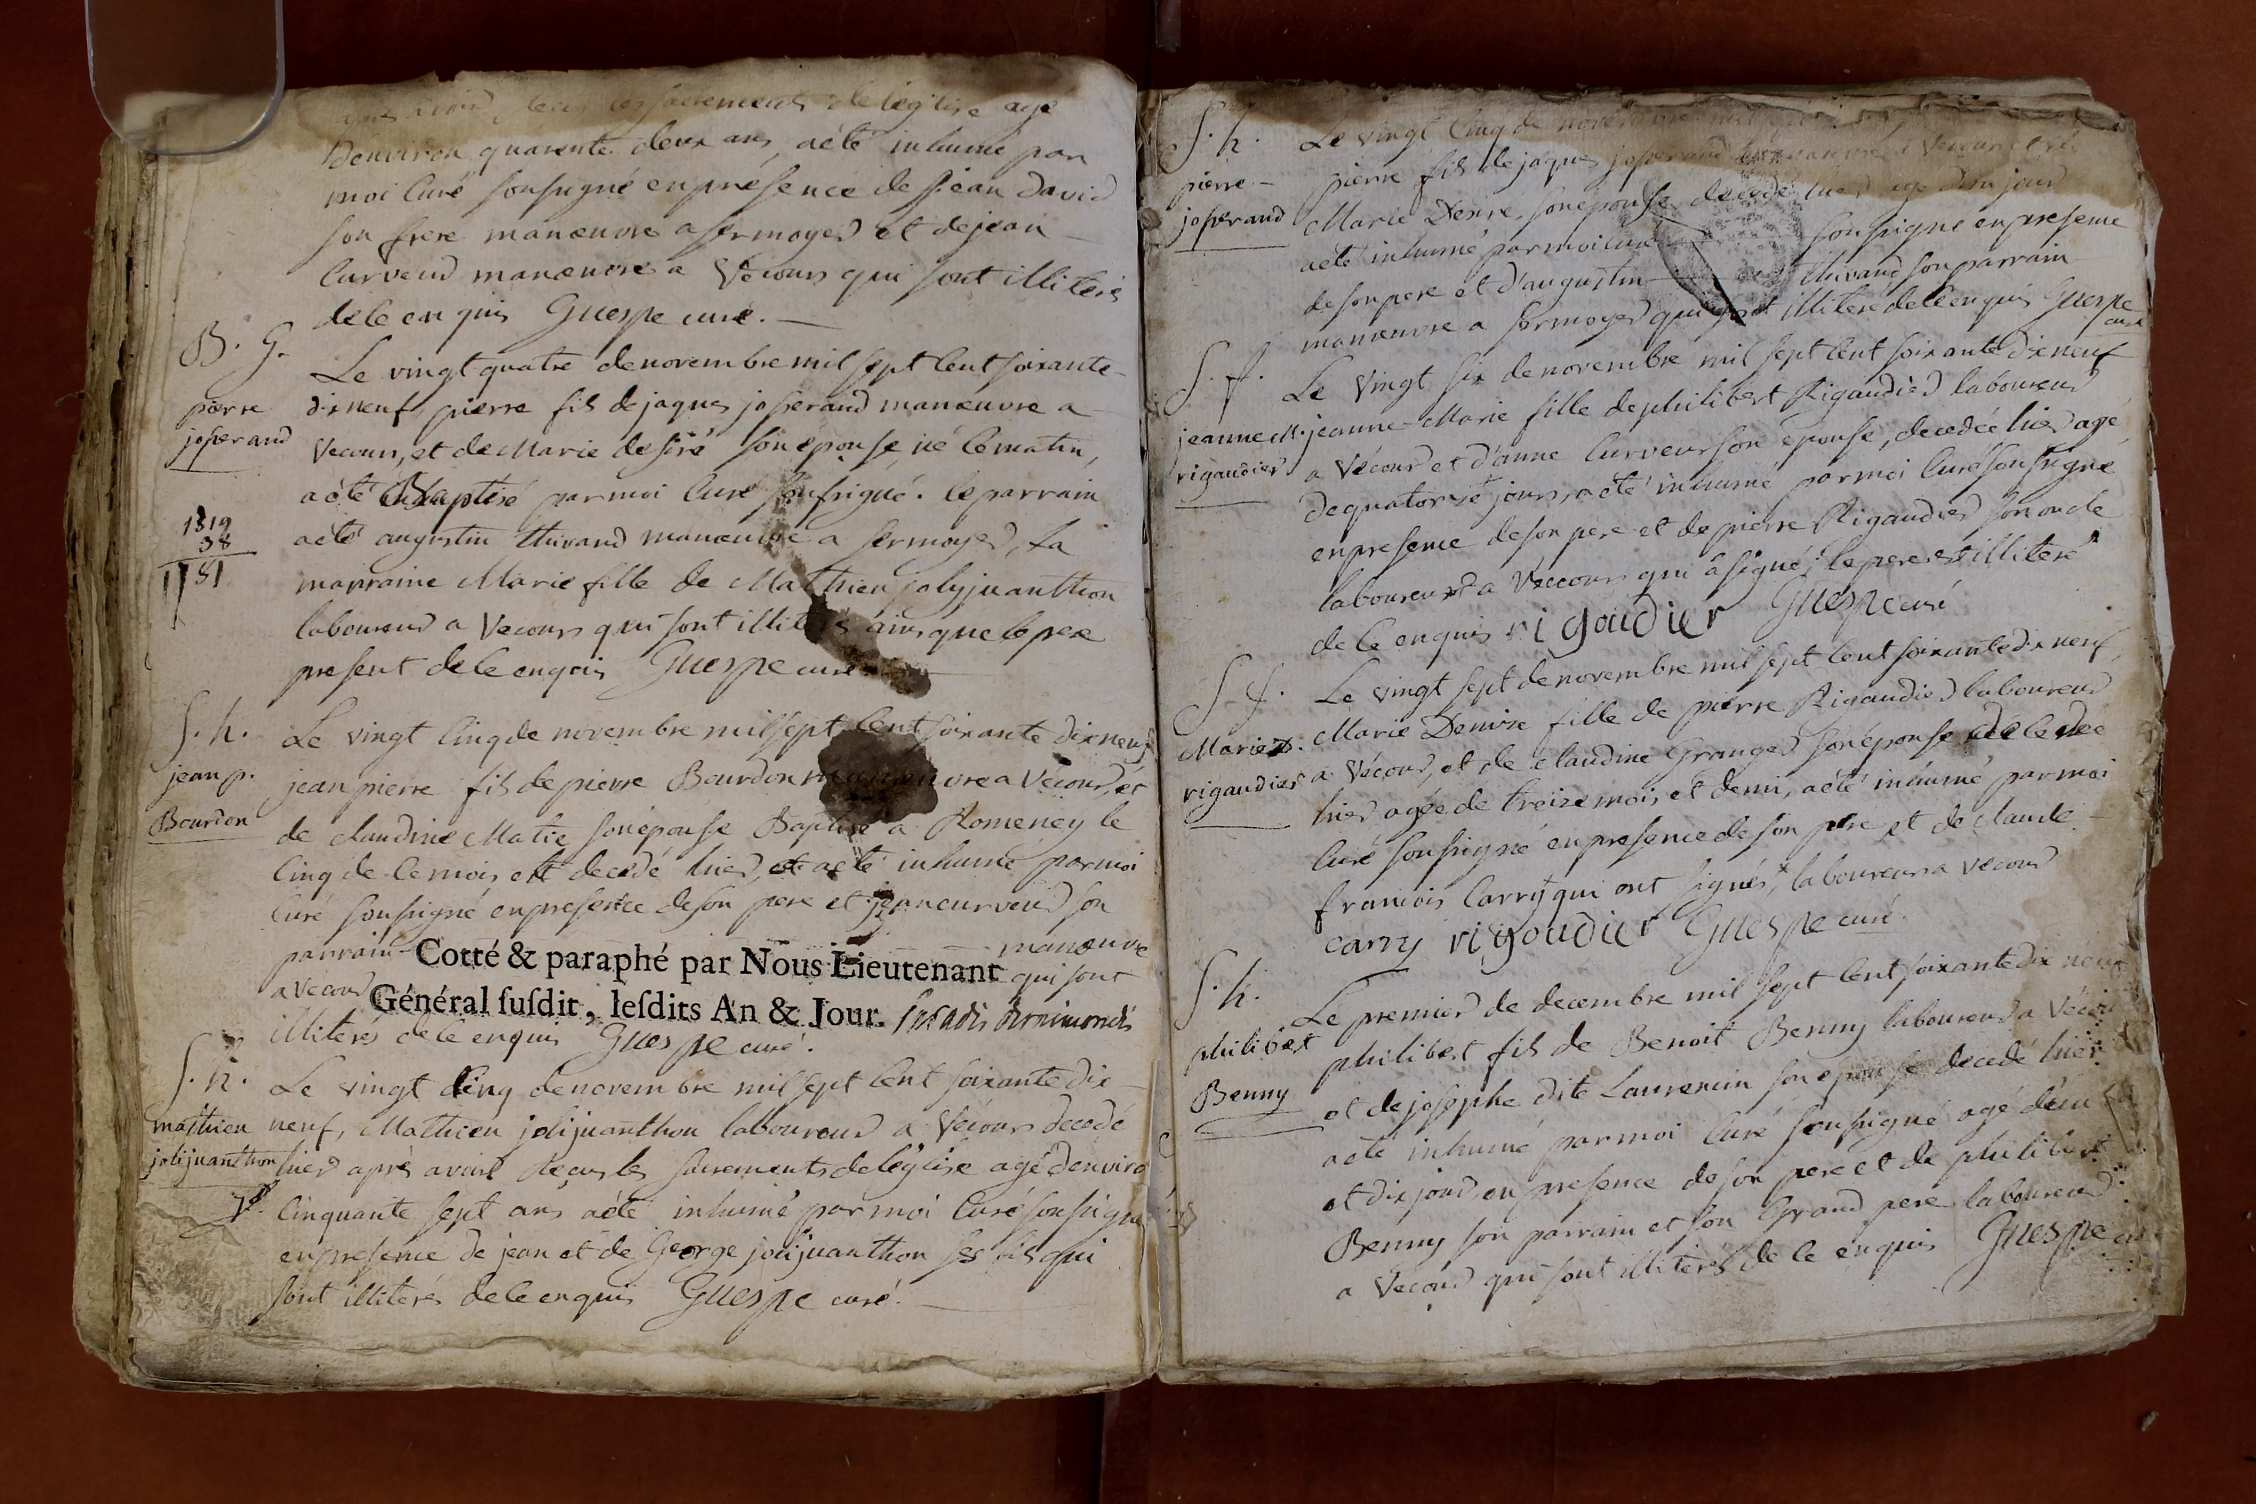 les sacrements de leglise agé
denviron quarante deux ans, aété inhumé par
moi curé soussigné en présence de jean david
son frere manœuvre a sermoyer et de jean
curveur manœuvre a Vécours qui sont illiterés
de ce enquis Guespe curé.
B. G.
pierre
josserand
Le vingt quatre de novembre mil sept cent soixante
dix neuf, pierre fils de jaques josserand manœuvre a
Vecours, et de Marie desiré son épouse né ce matin,
a été Baptisé par moi curé soussigné. le parrain
a été augustin thivand manœuvre a sermoyer, la
marraine Marie fille de Mathieu jolyjuanthon
laboureur a Vecours qui sont illiterés ainsque le pere
present de ce enquis Guespe curé
1819
38
1781
S. h.
jean p.
Bourdon
Le vingt cinq de novembre mil sept cent soixante dix neuf
jean pierre fils de pierre Bourdon manœuvre a Vecour, et
de claudine Matie son épouse Baptisé a Romeney le
cinq de ce mois est decedé hier, et a été inhumé par moi
curé soussigné en presence de son pere et jean curveur son
parrain manœuvre
Cotté & paraphé par Nous Lieutenant
a Vecour qui sont
Général susdit, lesdits An & Jour.
illiterés de ce enquis Guespe curé.
S. h.
mathieu
jolijuanthon
Le vingt cinq de novembre mil sept cent soixante dix
neuf, Mathieu jolijuanthon laboureur a Vécours decedé
hier après avoir recus les sacrements de l'église agé denviro
cinquante sept ans a été inhumé par moi curé soussigné
en presence de jean et de George jolijuanthon ses fils qui
sont illiterés de ce enquis Guespe curé.
S. h.
pierre
josserand
Le vingt cinq de novembre mil
pierre fils de jaques josserand manœuvre a Vecours et de
Marie Desire son épouse decedé hier agé d'un jour
a été inhumé par moi curé soussigné en presence
de son pere et d'augustin thivand son parrain
manœuvre a sermoyer qui sont illiteré de ce enquis Guespe
curé
S. f.
jeanne M.
rigaudier
Le Vingt six de novembre mil sept cent soixante dix neuf
jeanne-Marie fille de philibert Rigaudier laboureur
a Vécour et d'anne Curveur son épouse, decedée hier agé
de quatorse jours, a été inhumé par moi curé soussigné
en presence de son pere et de pierre Rigaudier son oncle
laboureur a Veccours qui a signé, le pere est illiteré
de ce enquis rigaudier Guespe curé
S. f.
Marie D.
rigaudier
Le vingt sept de novembre mil sept cent soixante dix neuf,
Marie Denise fille de pierre Rigaudier laboureur
a Vécour, et de claudine Granger son épouse decedée
hier agée de treize mois et demi, a été inhumé par moi
curé soussigné en presence de son pere et de claude
francois Carry qui ont signés, laboureurs a vecour
carry rigoudier Guespe curé.
S. h.
philibert
Benny
Le premier de decembre mil sept cent soixante dix neuf
philibert fils de Benoit Benny laboureur a Vécour
et de josephe dite Laurencin son épouse decedé hier
a été inhumé par moi curé soussigné agé d'un
et dix jour, en presence de son pere et de philibert
Benny son parrain et son Grand pere laboureur
a Vecour qui sont illiterés de ce enquis Guespe cu